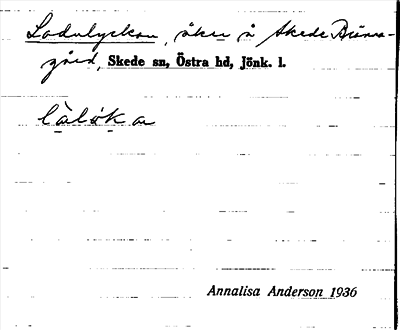 Ladulyckan, åker å Skede Däns-
gård, Skede sn, Östra hd, Jönk. l.
làlỳka
Annalisa Anderson 1936